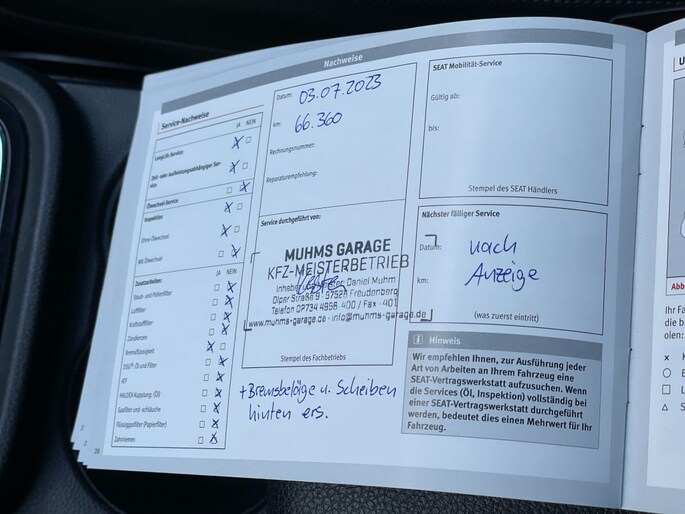 Nachweise
Service-Nachweise
JA NEIN
LongLife Service:
Zeit- oder laufleistungsabhängiger Ser-
vice
Ölwechsel-Service:
Inspektion:
Ohne Ölwechsel
Mit Ölwechsel
Zusatzarbeiten:
JA NEIN
Staub- und Pollenfilter
Luftfilter
Kraftstofffilter
Zündkerzen
Bremsflüssigkeit
DSG®: Öl und Filter
ATF
HALDEX Kupplung (Öl)
Gasfilter und -schläuche
Flüssiggasfilter (Papierfilter)
Zahnriemen
28
Datum: 03.07.2023
km: 66.360
Rechnungsnummer:
Reparaturempfehlung:
Service durchgeführt von:
MUHMS GARAGE
KFZ-MEISTERBETRIEB
Daniel Muhm
Olper Straße 9 · 57258 Freudenberg
Telefon 02734 4956-400 / Fax -401
www.muhms-garage.de · info@muhms-garage.de
Stempel des Fachbetriebs
+ Bremsbeläge u. Scheiben
hinten ers.
SEAT Mobilität-Service
Gültig ab:
bis:
Stempel des SEAT Händlers
Nächster fälliger Service
Datum: nach
km: Anzeige
(was zuerst eintritt)
i Hinweis
Wir empfehlen Ihnen, zur Ausführung jeder
Art von Arbeiten an Ihrem Fahrzeug eine
SEAT-Vertragswerkstatt aufzusuchen. Wenn
die Services (Öl, Inspektion) vollständig bei
einer SEAT-Vertragswerkstatt durchgeführt
werden, bedeutet dies einen Mehrwert für Ihr
Fahrzeug.
U
Abb
Ihr Fa
die b
olen: